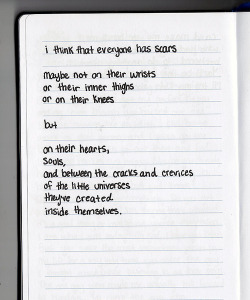 i think that everyone has scars
maybe not on their wrists
or their inner thighs
or on their knees
but
on their hearts,
souls,
and between the cracks and crevices
of the little universes
they've created
inside themselves.